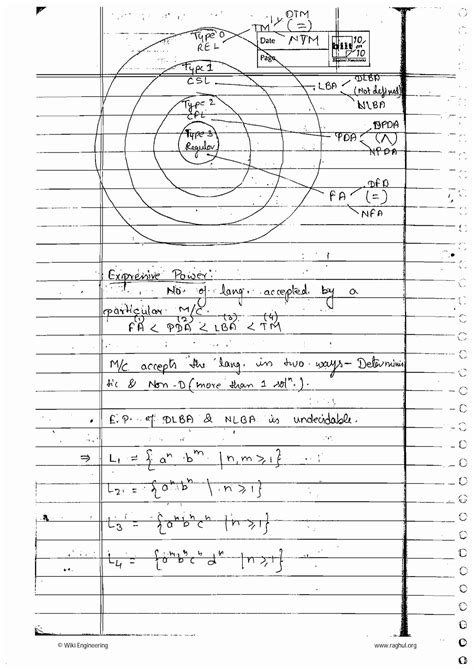 DTM
TM (=)
NTM
Date
Page
bilt 10 on 10
Type 0
REL
Type 1
CSL
LBA
DLBA
(Not defined)
NLBA
Type 2
CFL
PDA
DPDA
(∧)
NPDA
Type 3
Regular
FA
DFD
(=)
NFA
Expressive Power:
No. of lang. accepted by a
particular M/C.
(1) (2) (3) (4)
FA < PDA < LBA < TM
M/C accepts the lang. in two ways - Determinis
tic & Non-D (more than 1 solⁿ.).
E.P. of DLBA & NLBA is undecidable.
⇒ L₁ = {aⁿ bᵐ | n,m ≥ 1}
L₂ = {aⁿbⁿ | n ≥ 1}
L₃ = {aⁿbⁿcⁿ | n ≥ 1}
L₄ = {aⁿbⁿcⁿdⁿ | n ≥ 1}
© Wiki Engineering
www.raghul.org